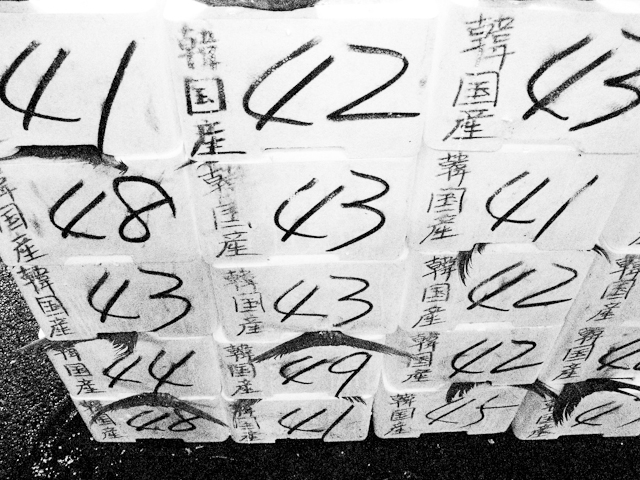 41
韓国産
42
韓国産
43
韓国産
48
韓国産
43
韓国産
41
韓国産
43
韓国産
43
韓国産
42
韓国産
44
韓国産
49
韓国産
42
韓国産
韓国産
48
韓国産
41
韓国産
45